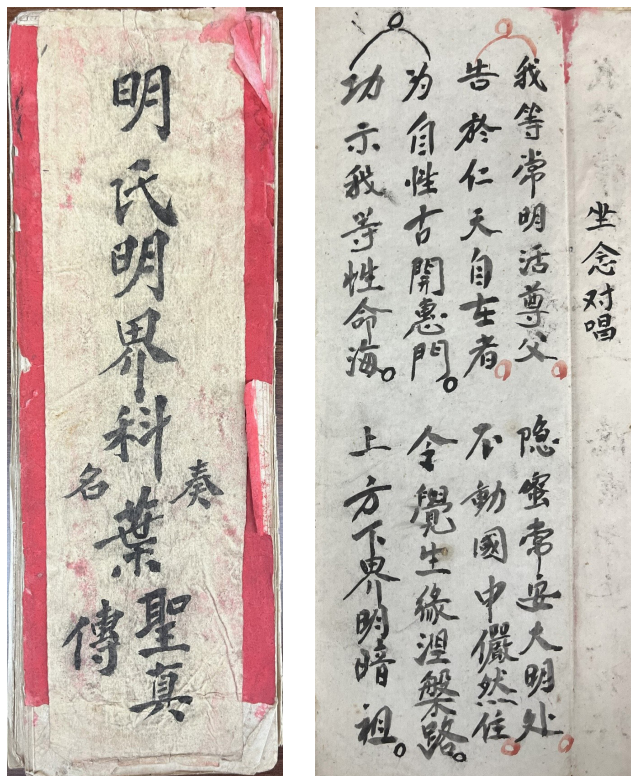 明氏明界科
奏名
葉聖真
傳
坐念对唱
我等常明活尊父 隐蜜常安大明处
告於仁天自在者 不動國中儼然住
为自性古開惠門 令覺生緣涅槃路
功示我等性命海 上方下界明暗祖